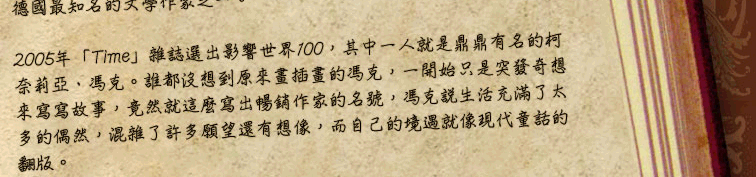 德國最知名的文學作家之一。
2005年「Time」雜誌選出影響世界100，其中一人就是鼎鼎有名的柯
奈莉亞、馮克。誰都沒想到原來畫插畫的馮克，一開始只是突發奇想
來寫寫故事，竟然就這麼寫出暢銷作家的名號，馮克說生活充滿了太
多的偶然，混雜了許多願望還有想像，而自己的境遇就像現代童話的
翻版。